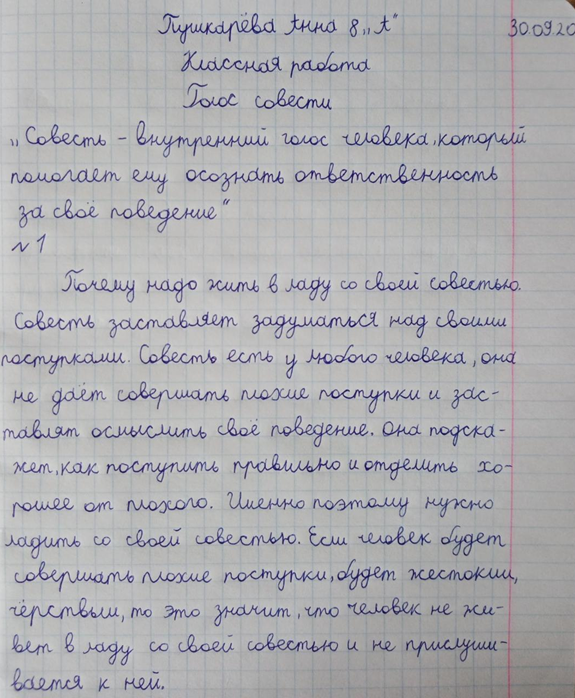 Пушкарёва Анна 8 „А"
30.09.20
Классная работа
Голос совести
„Совесть – внутренний голос человека, который
помогает ему осознать ответственность
за своё поведение"
№1
Почему надо жить в ладу со своей совестью.
Совесть заставляет задуматься над своими
поступками. Совесть есть у любого человека, она
не даёт совершать плохие поступки и зас-
тавлят осмыслить своё поведение. Она подска-
жет, как поступить правильно и отделить хо-
рошее от плохого. Именно поэтому нужно
ладить со своей совестью. Если человек будет
совершать плохие поступки, будет жестоким,
чёрствым, то это значит, что человек не жи-
вет в ладу со своей совестью и не прислуши-
вается к ней.